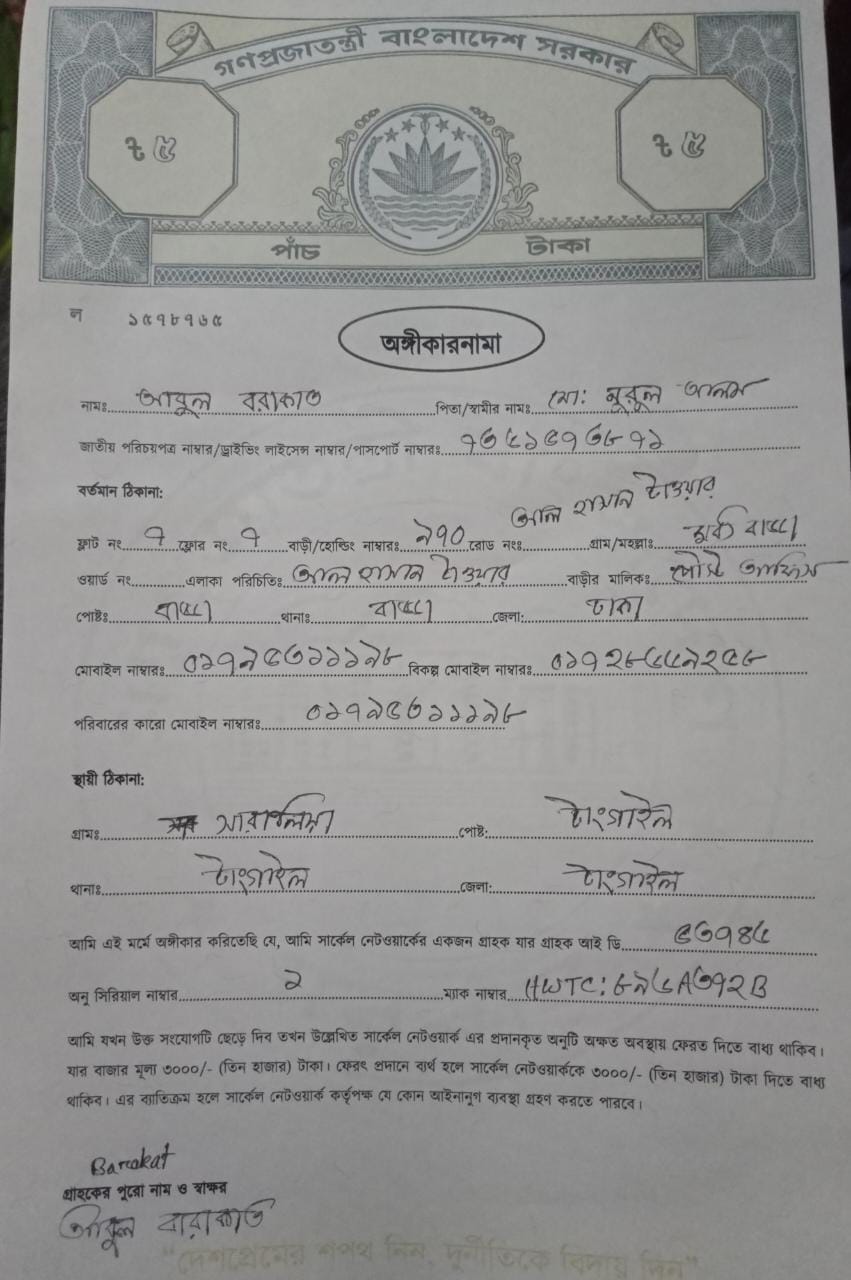 গণপ্রজাতন্ত্রী বাংলাদেশ সরকার
৳ ৫ ৳ ৫
পাঁচ টাকা
ল ১৫৭৮৭৬৫
অঙ্গীকারনামা
নামঃ আবুল বরাকাত পিতা/স্বামীর নামঃ মো: নুরুল আলম
জাতীয় পরিচয়পত্র নাম্বার/ড্রাইভিং লাইসেন্স নাম্বার/পাসপোর্ট নাম্বারঃ
বর্তমান ঠিকানা:
আল হাসান টাওয়ার
ফ্লাট নং ৭ ফ্লোর নং ৭ বাড়ী/হোল্ডিং নাম্বারঃ ৯৭০ রোড নংঃ গ্রাম/মহল্লাঃ বাড্ডা
ওয়ার্ড নং এলাকা পরিচিতিঃ আল হাসান টাওয়ার বাড়ীর মালিকঃ পোস্ট অফিস
পোষ্টঃ বাড্ডা থানাঃ বাড্ডা জেলা: ঢাকা
মোবাইল নাম্বারঃ ০১৭৯৫৩১১১৯৮ বিকল্প মোবাইল নাম্বারঃ
পরিবারের কারো মোবাইল নাম্বারঃ ০১৭৯৫৩১১১৯৮
স্থায়ী ঠিকানা:
গ্রামঃ পোষ্ট: টাংগাইল
থানাঃ টাংগাইল জেলা: টাংগাইল
আমি এই মর্মে অঙ্গীকার করিতেছি যে, আমি সার্কেল নেটওয়ার্কের একজন গ্রাহক যার গ্রাহক আই ডি
অনু সিরিয়াল নাম্বার ১ ম্যাক নাম্বার
আমি যখন উক্ত সংযোগটি ছেড়ে দিব তখন উল্লেখিত সার্কেল নেটওয়ার্ক এর প্রদানকৃত অনুটি অক্ষত অবস্থায় ফেরত দিতে বাধ্য থাকিব।
যার বাজার মূল্য ৩০০০/- (তিন হাজার) টাকা। ফেরৎ প্রদানে ব্যর্থ হলে সার্কেল নেটওয়ার্ককে ৩০০০/- (তিন হাজার) টাকা দিতে বাধ্য
থাকিব। এর ব্যাতিক্রম হলে সার্কেল নেটওয়ার্ক কর্তৃপক্ষ যে কোন আইনানুগ ব্যবস্থা গ্রহণ করতে পারবে।
Barakat
গ্রাহকের পুরো নাম ও স্বাক্ষর
আবুল বারাকাত
“দেশপ্রেমের শপথ নিন, দুর্নীতিকে বিদায় দিন”